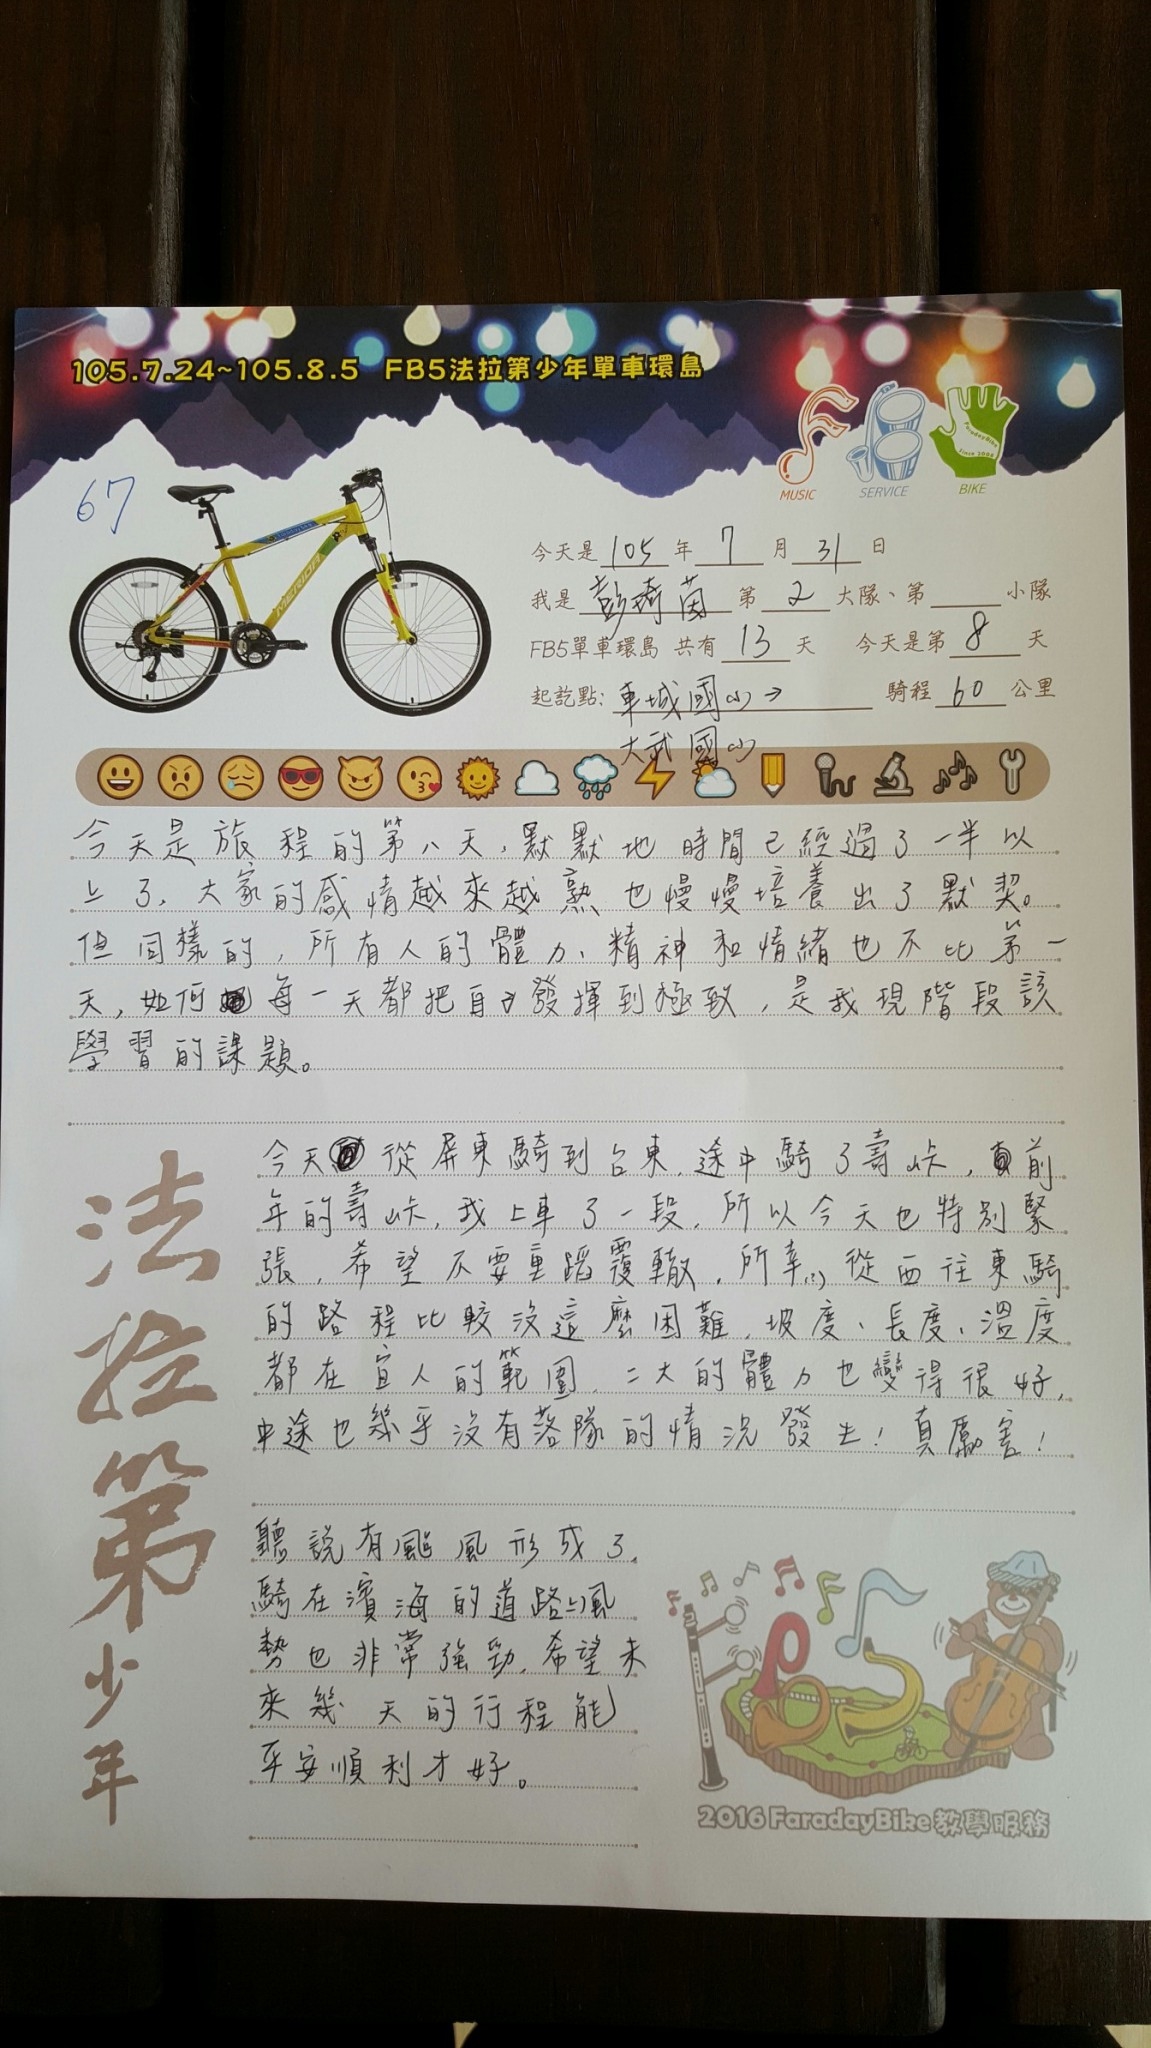 105.7.24~105.8.5 FB5法拉第少年單車環島
MUSIC SERVICE BIKE
FaradayBike
Since 2008
67
MERIDA
今天是 105 年 7 月 31 日
我是 彭琦茵 第 2 大隊、第 小隊
FB5單車環島 共有 13 天 今天是第 8 天
起訖點: 車城國小→ 騎程 60 公里
大武國小
今天是旅程的第八天,默默地時間已經過了一半以
上了,大家的感情越來越熟也慢慢培養出了默契。
但同樣的,所有人的體力、精神和情緒也不比第一
天,如何每一天都把自己發揮到極致,是我現階段該
學習的課題。
今天從屏東騎到台東,途中騎了壽峠,前
年的壽峠,我上車了一段,所以今天也特別緊
張,希望不要重蹈覆轍,所幸,從西往東騎
的路程比較沒這麼困難,坡度、長度、溫度
都在宜人的範圍,二大的體力也變得很好,
中途也幾乎沒有落隊的情況發生!真厲害!
聽說有颱風形成了,
騎在濱海的道路上風
勢也非常強勁,希望未
來幾天的行程能
平安順利才好。
法拉第少年
2016 FaradayBike教學服務